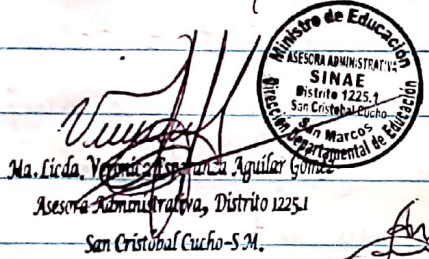 Ministro de Educación
ASESORA ADMINISTRATIVA
SINAE
Distrito 1225.1
San Cristobal Cucho
San Marcos
Dirección Departamental de Educación
Ma. Licda. Verónica Esperanza Aguilar Gómez
Asesora Administrativa, Distrito 1225.1
San Cristóbal Cucho-S.M.